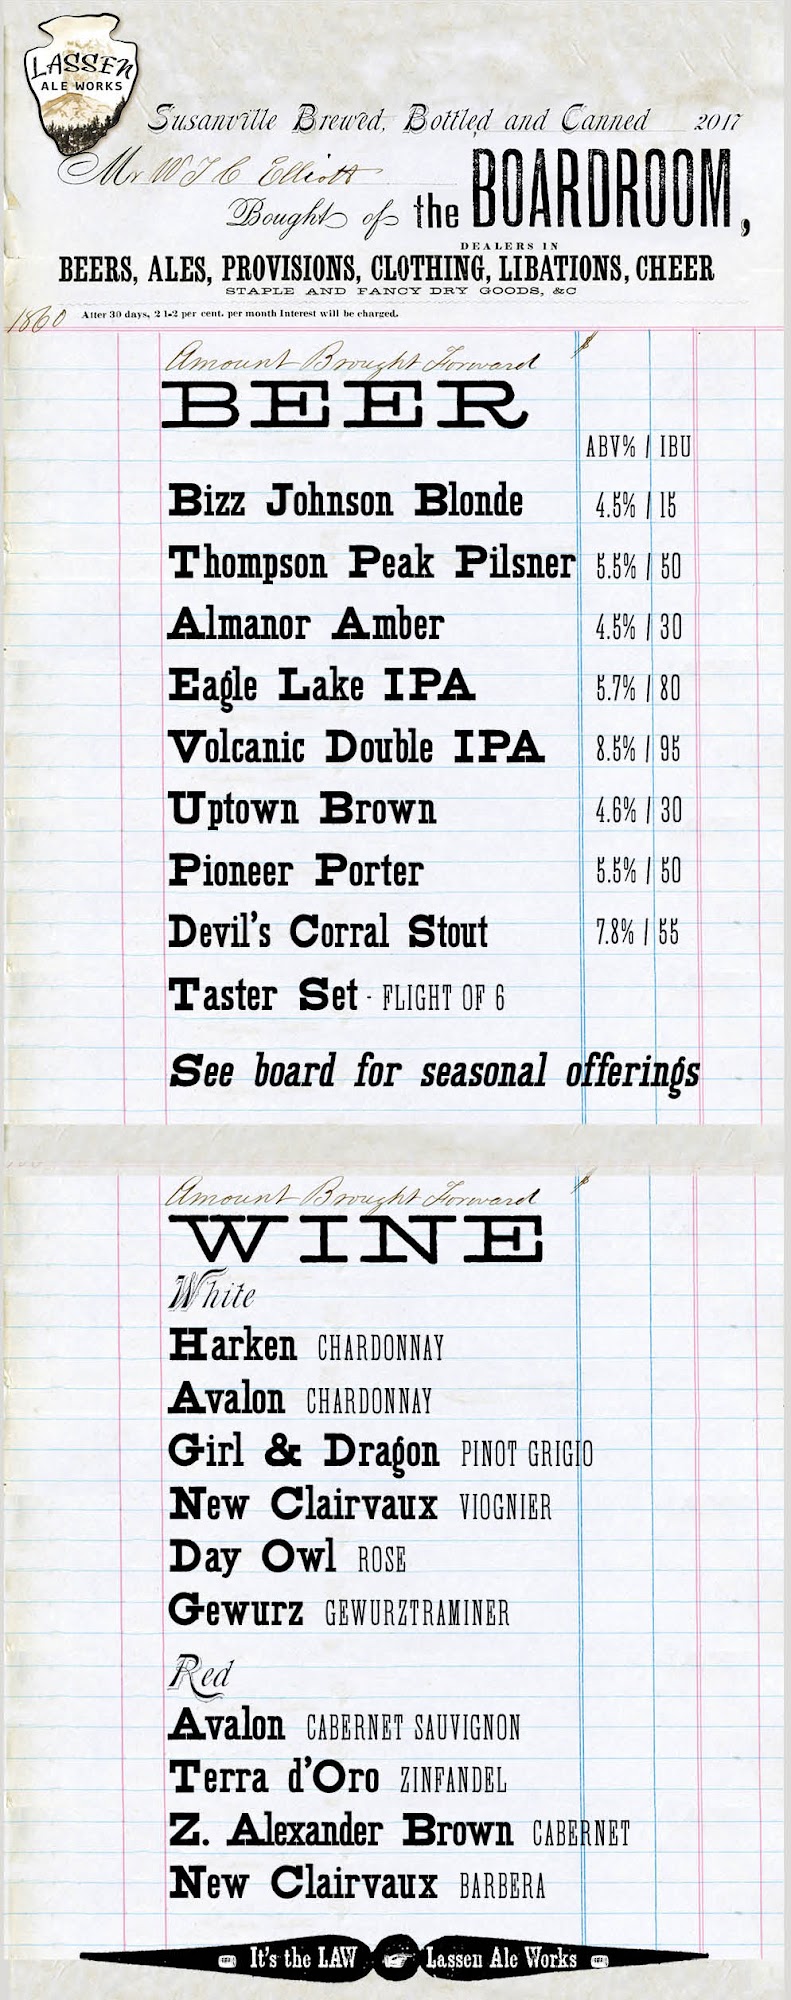 LASSEN
ALE WORKS
Susanville Brew'd, Bottled and Canned 2017
Mr W J C Elliott
Bought of the BOARDROOM,
DEALERS IN
BEERS, ALES, PROVISIONS, CLOTHING, LIBATIONS, CHEER
STAPLE AND FANCY DRY GOODS, &C
1860 After 30 days, 2 1-2 per cent. per month Interest will be charged.
Amount Brought Forward $
BEER
ABV% / IBU
Bizz Johnson Blonde 4.5% / 15
Thompson Peak Pilsner 5.5% / 50
Almanor Amber 4.5% / 30
Eagle Lake IPA 5.7% / 80
Volcanic Double IPA 8.5% / 95
Uptown Brown 4.6% / 30
Pioneer Porter 5.5% / 50
Devil's Corral Stout 7.8% / 55
Taster Set - FLIGHT OF 6
See board for seasonal offerings
Amount Brought Forward $
WINE
White
Harken CHARDONNAY
Avalon CHARDONNAY
Girl & Dragon PINOT GRIGIO
New Clairvaux VIOGNIER
Day Owl ROSE
Gewurz GEWURZTRAMINER
Red
Avalon CABERNET SAUVIGNON
Terra d'Oro ZINFANDEL
Z. Alexander Brown CABERNET
New Clairvaux BARBERA
It's the LAW Lassen Ale Works